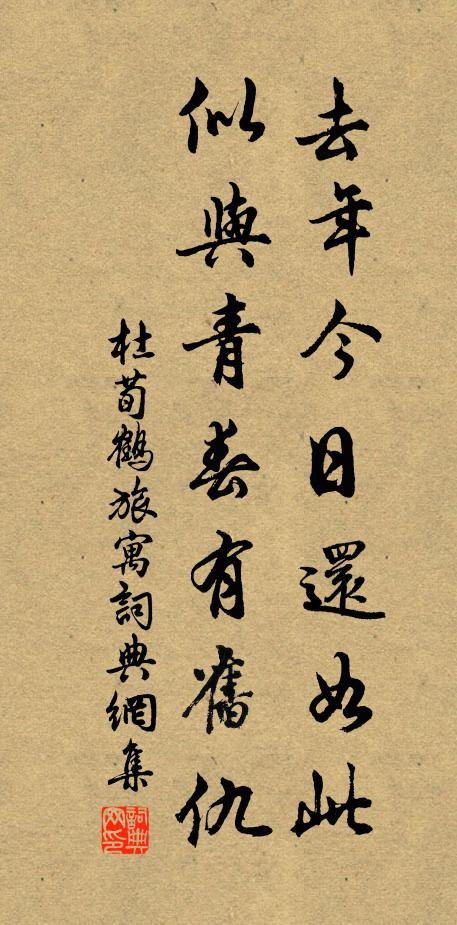 去年今日還如此
似與青春有舊仇
杜荀鶴旅寓詞典網集
詞典网印